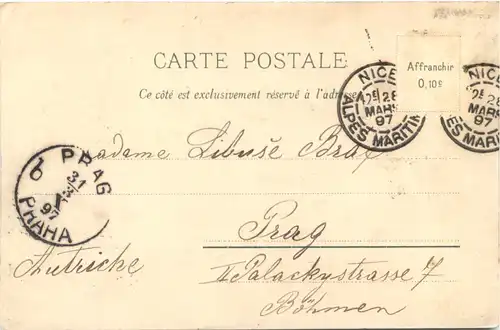 CARTE POSTALE
Ce côté est exclusivement réservé à l'adresse
Affranchir
0,10c
NICE
28
MARS
97
ALPES MARITIM
NICE
28
MARS
97
ES MARITIM
PRAG
31
97
PRAHA
Madame Libuše
Prag
II Palackystrasse 7
Autriche
Böhmen